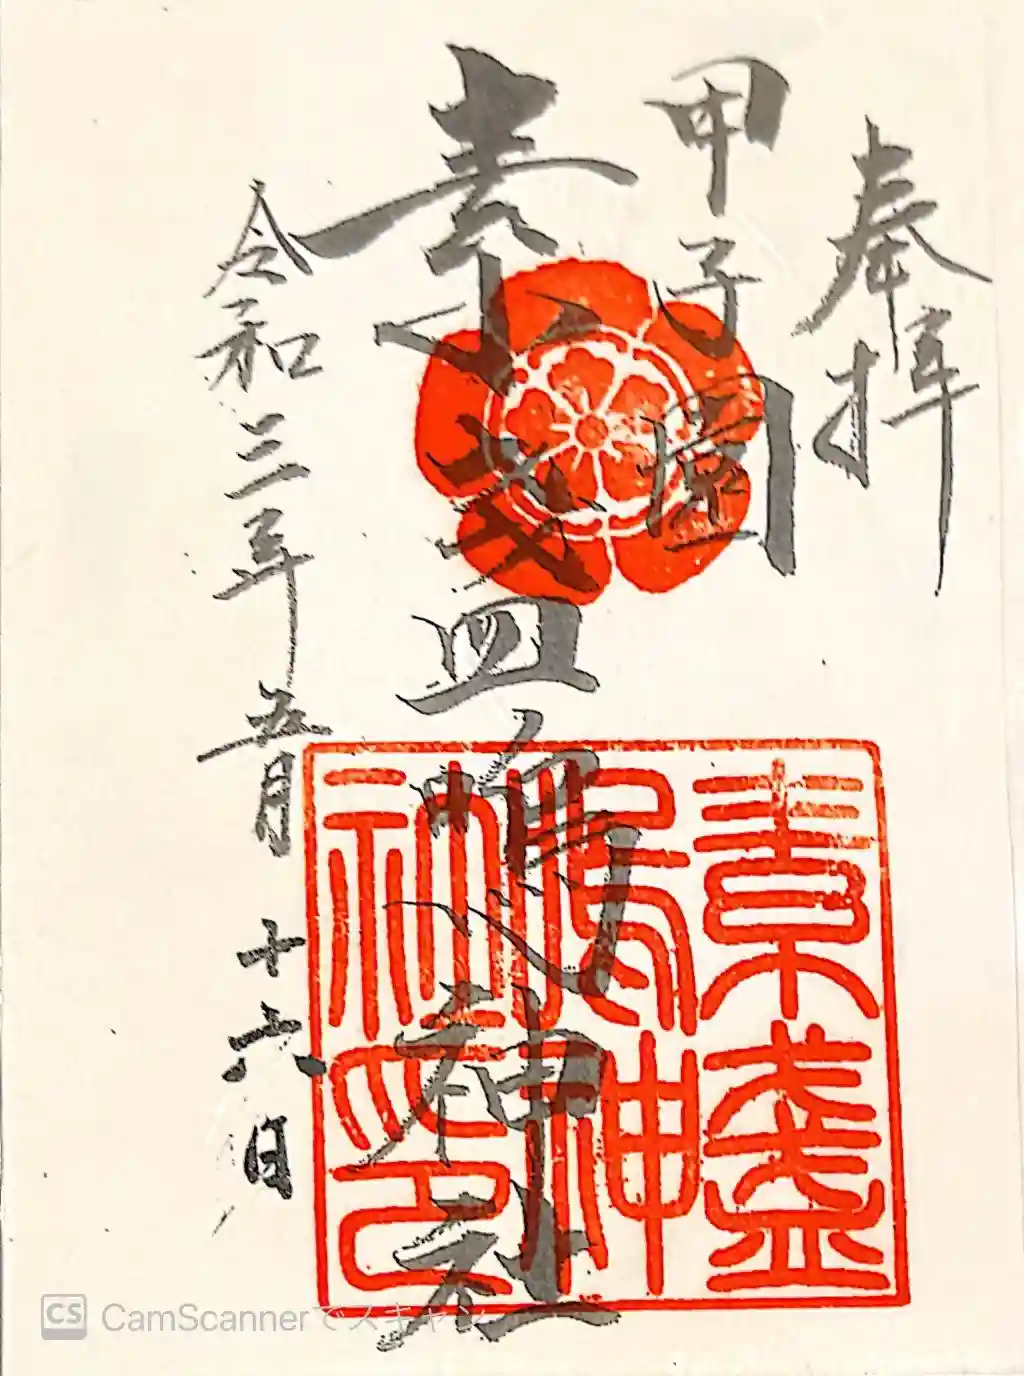 奉拝
甲子園
素盞嗚神社
令和三年五月十六日
素盞
嗚神
社印
CS CamScannerでスキャン